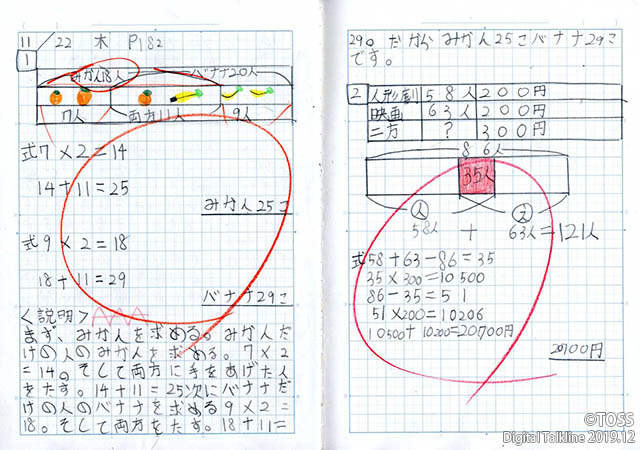 11/22 木 P182
1
みかん18人 バナナ20人
7人 両方11人 9人
式7×2=14
14+11=25
みかん25こ
式9×2=18
18+11=29
バナナ29こ
<説明>
まず、みかんを求める。みかんだ
けの人のみかんを求める。7×2
=14。そして両方に手をあげた人
をたす。14+11=25次にバナナだ
けの人のバナナを求める9×2=
18。そして両方をたす。18+11=
29。だから みかん25こバナナ29こ
です。
2 人形劇 58人 200円
映画 63人 200円
二方 ? 300円
86人
35人
人 え
58人 + 63人=121人
式58+63-86=35
35×300=10500
86-35=51
51×200=10206
10500+10200=20700円
20700円
©TOSS
Digital Talkline 2019.12